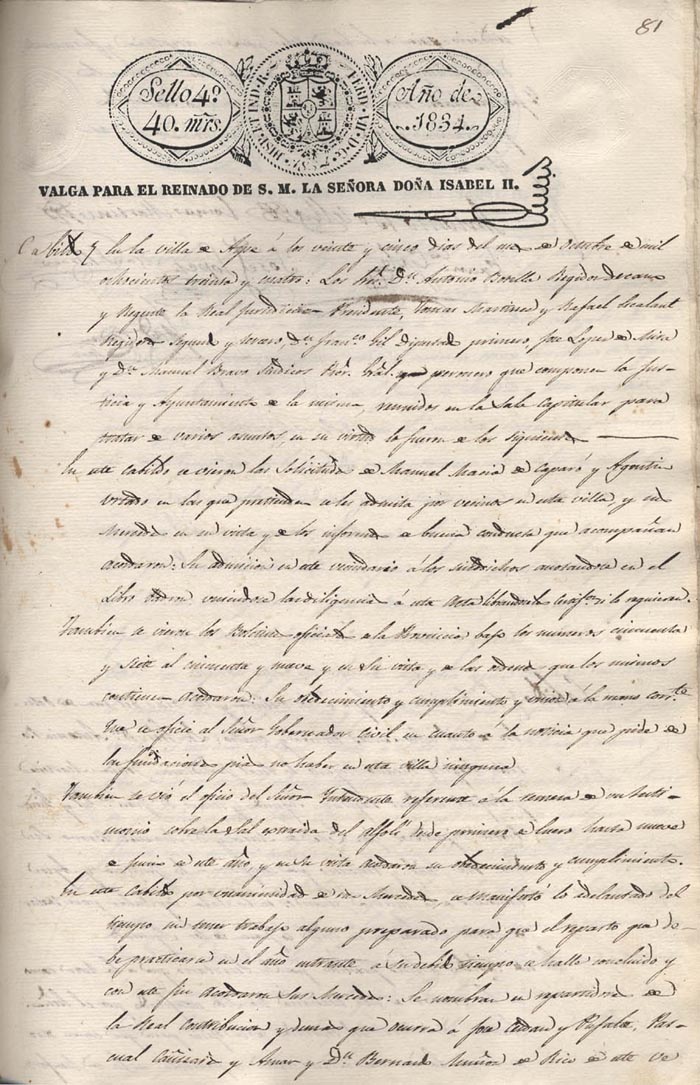 81
Sello 4º
40. mrs.
HISP. ET IND. R. FERD. VII. D. G.
Año de
1834.
VALGA PARA EL REINADO DE S. M. LA SEÑORA DOÑA ISABEL II.
Cabildo En la villa de á los veinte y cinco dias del mes de Octubre de mil
ochocientos treinta y cuatro: Los Sres. Dn. Antonio Regidor decano
y Regente la Real Jurisdiccion Presidente, Tomas Martinez y Rafael
Regidores segundo y tercero, Dn. Franco. Gil Diputado primero, Jose Lopez de Mira
y Dn. Manuel Bravo Sindicos Pror. Gral. y personero que componen la Jus-
ticia y Ayuntamiento de la misma, reunidos en la Sala Capitular para
tratar de varios asuntos, en su virtud lo fueron de los siguientes
En este Cabildo se vieron las Solicitudes de Manuel Maria de y Agustin
en las que pretenden se les admita por vecinos en esta villa, y sus
Mercedes en su vista y de los informes de buena conducta que acompañan
acordaron: Su admision en este vecindario á los susodichos anotandose en el
Libro uniendose las diligencias á esta Acta librandoles Certifn. si la requieran.
Tambien se vieron los Boletines oficiales de la Provincia bajo los numeros cincuenta
y siete al cincuenta y nueve y en su vista y de las ordenes que los mismos
contienen acordaron: Su obedecimiento y cumplimiento y
se oficie al Señor Gobernador Civil en cuanto á la noticia que pide de
las fundaciones pias no haber en esta villa ninguna
Tambien se vió el oficio del Señor Intendente referente á la remesa de un testi-
monio sobre la Sal extraida del alfolí desde primero de Enero hasta nueve
de Junio de este año y en su vista acordaron su obedecimiento y cumplimiento.
En este Cabildo por unanimidad de sus Mercedes, se manifestó lo adelantado del
tiempo sin tener trabajo alguno preparado para que el reparto que de-
be practicarse en el año entrante a su debido tiempo se halle concluido y
con este fin acordaron sus Mercedes: Se nombran de repartidores de
la Real Contribucion y demas que ocurra á Jose y Rafael, Pas-
cual Cañizares y Amar y Dn. Bernardo Muñoz de Rico de este ve